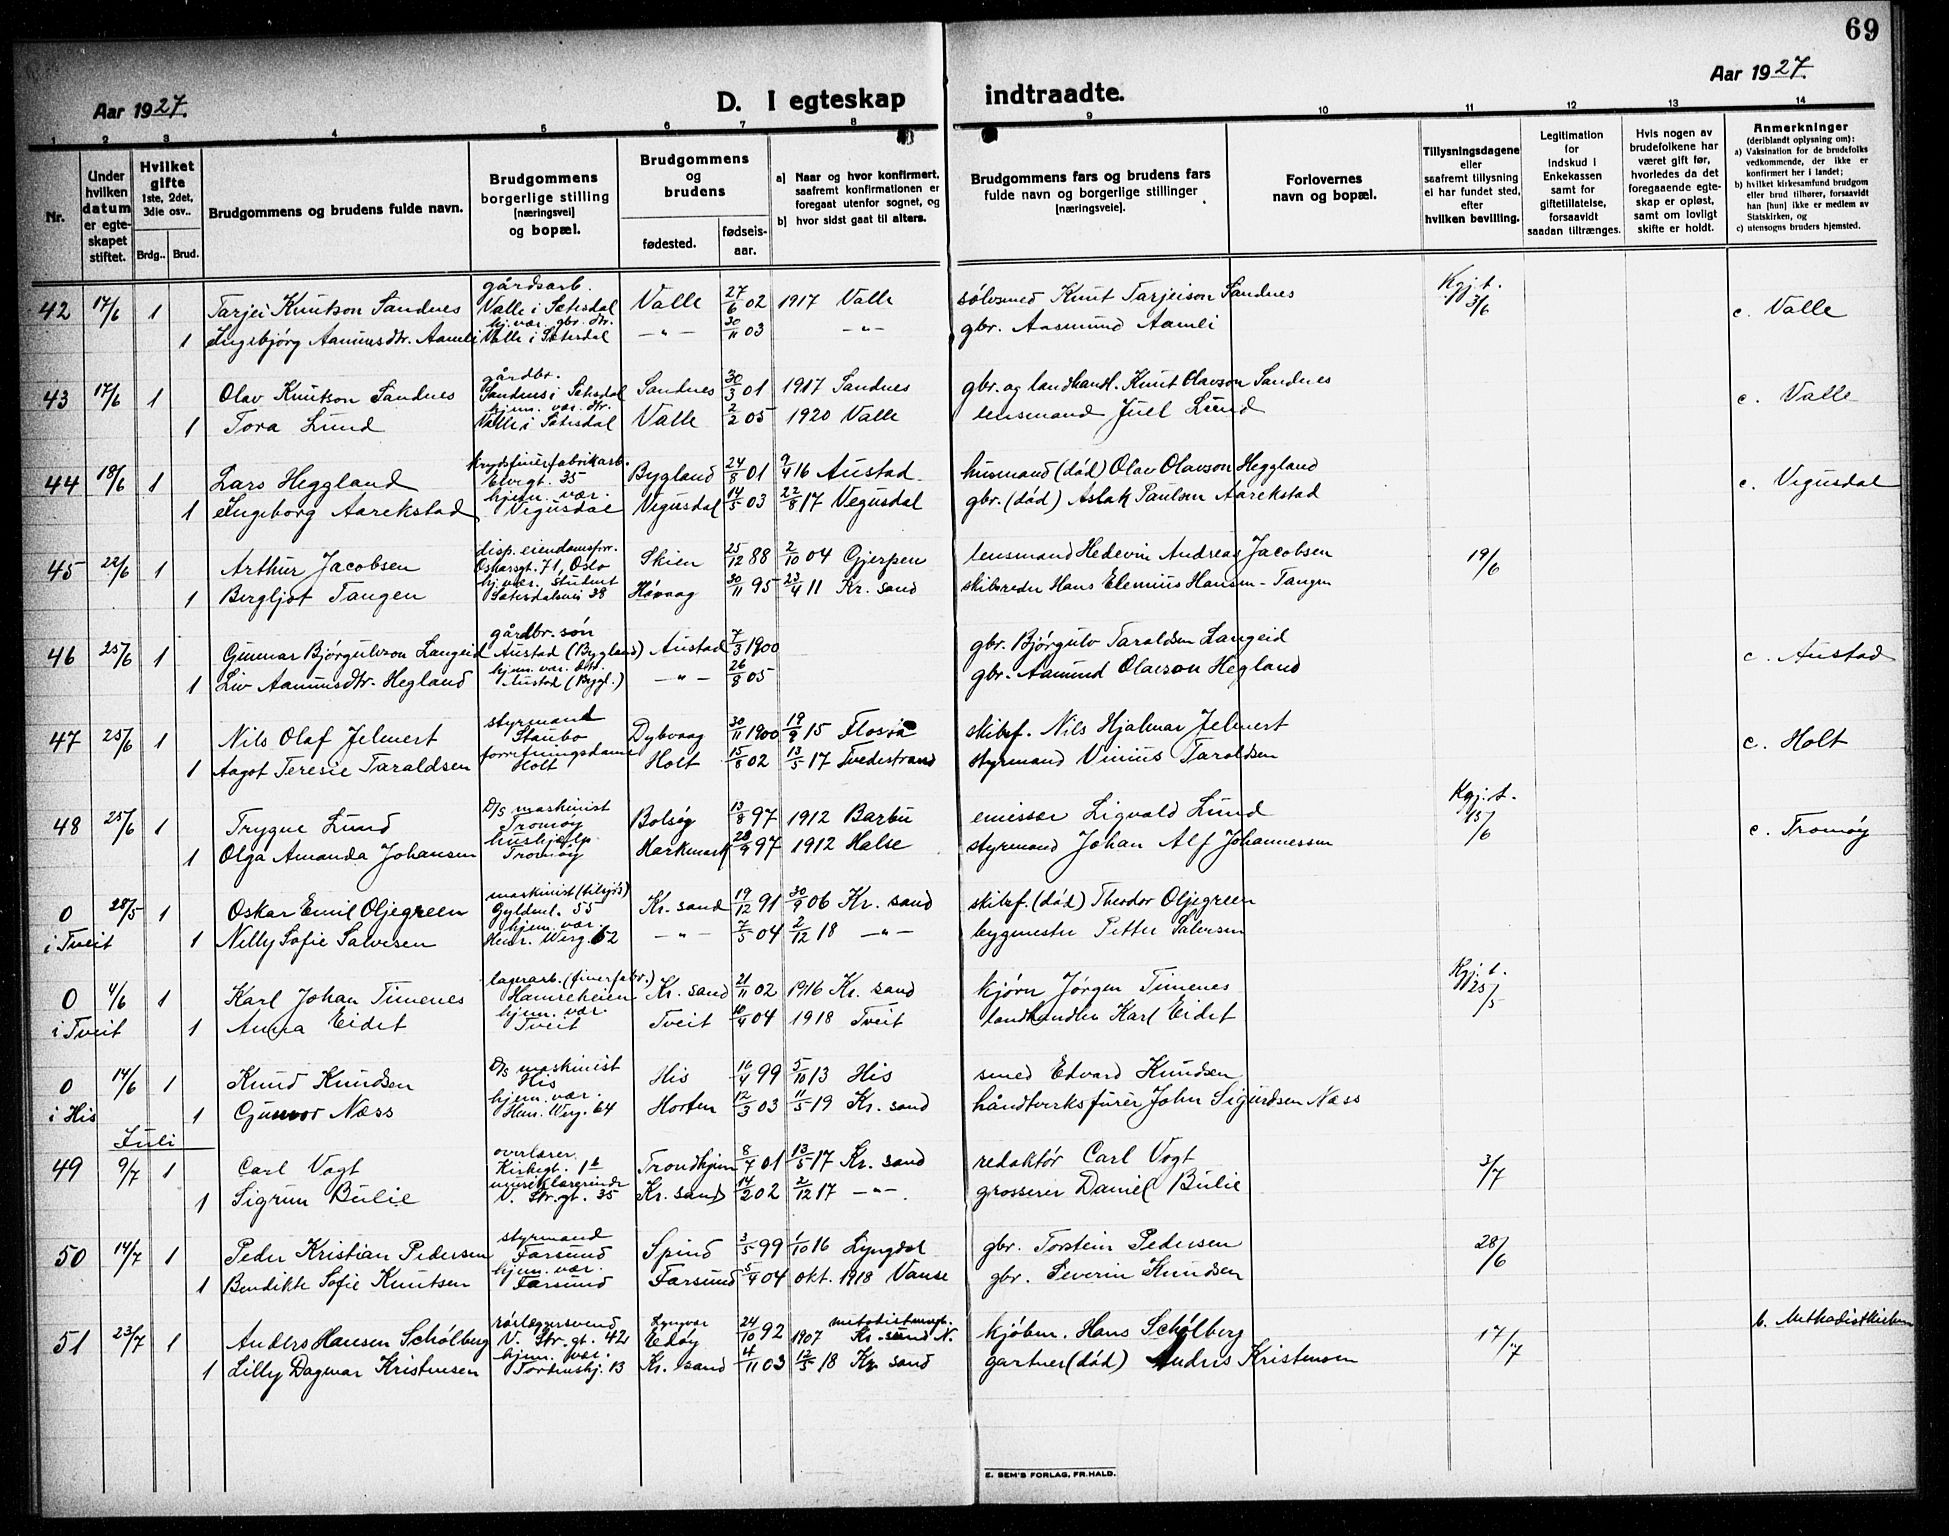 69
Aar 1927.
D. I egteskap indtraadte.
Aar 1927.
1 2 3 4 5 6 7 8 9 10 11 12 13 14
Nr.
Under hvilken datum er egteskapet stiftet.
Hvilket gifte 1ste, 2det, 3die osv..
Brdg.. Brud.
Brudgommens og brudens fulde navn.
Brudgommens borgerlige stilling [næringsvei] og bopæl.
Brudgommens og brudens
fødested. fødselsaar.
a) Naar og hvor konfirmert, saafremt konfirmationen er foregaat utenfor sognet, og
b) hvor sidst gaat til alters.
Brudgommens fars og brudens fars fulde navn og borgerlige stillinger [næringsveie].
Forlovernes navn og bopæl.
Tillysningsdagene eller saafremt tillysning ei har fundet sted, efter hvilken bevilling.
Legitimation for indskud i Enkekassen samt for giftetillatelse, forsaavidt saadan tiltrænges.
Hvis nogen av brudefolkene har været gift før, hvorledes da det foregaaende egteskap er opløst, samt om lovligt skifte er holdt.
Anmerkninger (deriblandt oplysning om):
a) Vaksination for de brudefolks vedkommende, der ikke er konfirmert her i landet;
b) hvilket kirkesamfund brudgom eller brud tilhører, forsaavidt han [hun] ikke er medlem av Statskirken, og
c) utensogns bruders hjemsted.
42 17/6 1 Tarjei Knutson Sandnes gårdsarb. Valle i Sætesdal Valle 27/6 02 1917 Valle sølvsmed Knut Tarjeison Sandnes Kgj. t. 3/6 c. Valle
1 Ingebjørg Aamundsdtr. Aamli hj. vær. gbr. dtr. Valle i Sætesdal —„— 30/11 03 —„— gbr. Aasmund Aamli
43 17/6 1 Olav Knutson Sandnes gårdbr. Sandnes i Sætesdal Sandnes 30/3 01 1917 Sandnes gbr. og landhandl. Knut Olavson Sandnes c. Valle
1 Tora Lund hjem. vær. dtr. Valle i Sætesdal Valle 2/2 05 1920 Valle lensmand Juel Lund
44 18/6 1 Lars Heggland krydsfinerfabrikarb. Elvegt. 35 Bygland 24/8 01 9/4 16 Austad husmand (død) Olav Olavson Heggland c. Vegusdal
1 Ingeborg Aarekstad hjem. vær. Vegusdal Vegusdal 14/5 03 22/8 17 Vegusdal gbr. (død) Aslak Paulsen Aarekstad
45 22/6 1 Arthur Jacobsen disp. eiendomsforr. Oskarsgt. 71, Oslo Skien 25/12 88 2/10 04 Gjerpen lensmand Hedevin Andreas Jacobsen 19/6
1 Bergljot Tangen hj. vær. student Sætesdalsvei 38 Høvaag 30/11 95 23/4 11 Kr. sand skibsreder Hans Elenius Hansen-Tangen
46 25/6 1 Gunnar Bjørgulvson Langeid gårdbr. søn Austad (Bygland) Austad 7/3 1900 gbr. Bjørgulv Taraldsen Langeid c. Austad
1 Liv Aamundsdtr. Hegland hjem. vær. dtr. Austad (Bygl.) —„— 26/8 05 gbr. Aamund Olavson Hegland
47 25/6 1 Nils Olaf Jelmert styrmand Staubø Dybvaag 30/11 1900 19/9 15 Flosta skibsf. Nils Hjalmar Jelmert c. Holt
1 Aagot Teresie Taraldsen forretningsdame Holt Holt 15/8 02 13/5 17 Tvedestrand styrmand Vinius Taraldsen
48 25/6 1 Trygve Lund D/S maskinist Tromøy Bolsøy 13/8 97 1912 Barbu emissær Sigvald Lund Kgj. t. 15/6 c. Tromøy
1 Olga Amanda Johansen hushjelp Tromøy Harkmark 28/9 97 1912 Halse styrmand Johan Alf Johannessen
0 28/5 1 Oskar Emil Oljegreen maskinist (tilsjøs) Gyldenl. 55 Kr. sand 19/12 91 30/9 06 Kr. sand skibsf. (død) Theodor Oljegreen
i Tveit 1 Nelly Sofie Salvesen hjem. vær. Henr. Werg. 62 —„— 7/5 04 2/12 18 —„— bygmester Petter Salvesen
0 4/6 1 Karl Johan Timenes lagerarb. (finerfabr.) Hamreheien Kr. sand 21/11 02 1916 Kr. sand kjørn Jørgen Timenes Kgj. t. 25/5
i Tveit 1 Anna Eidet hjem. vær. Tveit Tveit 10/4 04 1918 Tveit landhandler Karl Eidet
0 14/6 1 Knud Knudsen D/S maskinist His His 16/4 99 5/10 13 His smed Edvard Knudsen
i His 1 Gunvor Næss hjem. vær. Hen. Werg. 64 Horten 12/3 03 11/5 19 Kr. sand håndverksfurer John Sigurdsen Næss
Juli
49 9/7 1 Carl Vogt overlærer Kirkegt. 1b Trondhjem 8/7 01 13/5 17 Kr. sand redaktør Carl Vogt 3/7
1 Sigrun Bulie musiklærerinde V. Str. gt. 35 Kr. sand 14/2 02 2/12 17 —„— grosserer Daniel Bulie
50 14/7 1 Peder Kristian Pedersen styrmand Farsund Spind 3/5 99 1/10 16 Lyngdal gbr. Torstein Pedersen 28/6
1 Bendikte Sofie Knutsen hjem. vær. Farsund Farsund 5/4 04 okt. 1918 Vanse gbr. Severin Knudsen
51 23/7 1 Anders Hansen Schølberg rørlæggersvend V. Str. gt. 42 Edøy 24/10 92 1907 Kr. sund N. kjøbm. Hans Schølberg 17/7 b. Methodistkirken
1 Lilly Dagmar Kristensen hjem. vær. Torkenshj. 13 Kr. sand 4/11 03 12/5 18 Kr. sand gartner (død) Anders Kristensen
E. SEM'S FORLAG, FR.HALD.